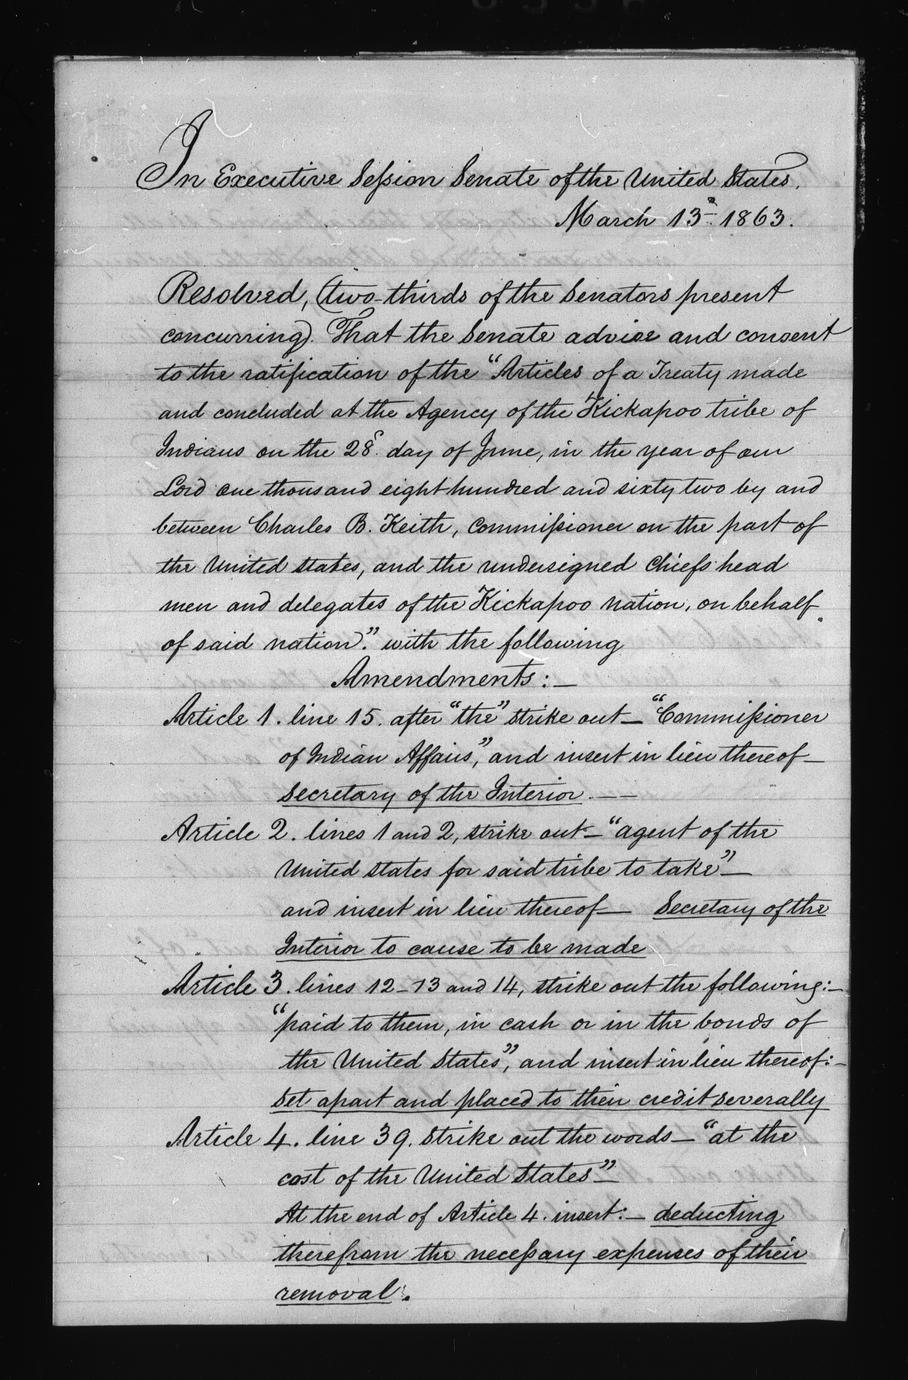 In Executive Session Senate of the United States.
March 13th 1863.
Resolved, (two-thirds of the Senators present
concurring). That the Senate advise and consent
to the ratification of the "Articles of a Treaty made
and concluded at the Agency of the Kickapoo tribe of
Indians on the 28th day of June, in the year of our
Lord one thousand eight hundred and sixty two by and
between Charles B. Keith, commissioner on the part of
the United States, and the undersigned Chiefs head
men and delegates of the Kickapoo nation, on behalf
of said nation." with the following
Amendments:—
Article 1. line 15. after "the" strike out— "Commissioner
of Indian Affairs", and insert in lieu thereof—
Secretary of the Interior.——
Article 2. lines 1 and 2, strike out— "agent of the
United States for said tribe to take"—
and insert in lieu thereof— Secretary of the
Interior to cause to be made
Article 3. lines 12–13 and 14, strike out the following:—
"paid to them, in cash or in the bonds of
the United States", and insert in lieu thereof:—
set apart and placed to their credit severally
Article 4. line 39. strike out the words— "at the
cost of the United States"—
At the end of Article 4. insert:— deducting
therefrom the necessary expenses of their
removal.